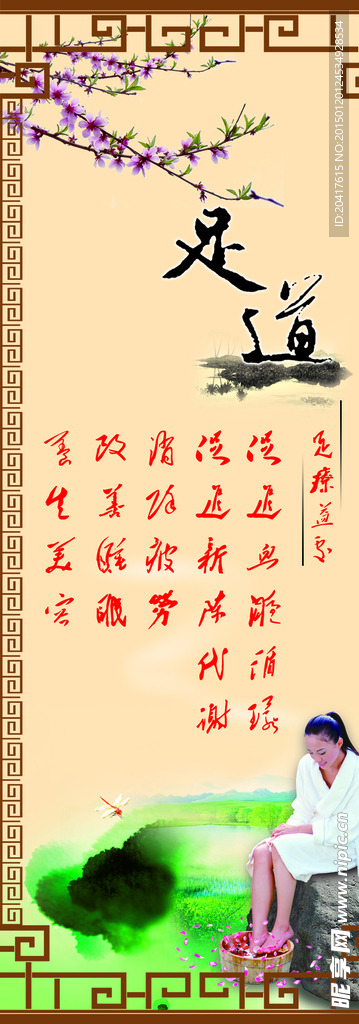 足道
足療益处
促进血液循環
促进新陈代谢
消除疲劳
改善睡眠
养生美容
昵享网 www.nipic.cn
ID:20417615 NO:20150120124534928534